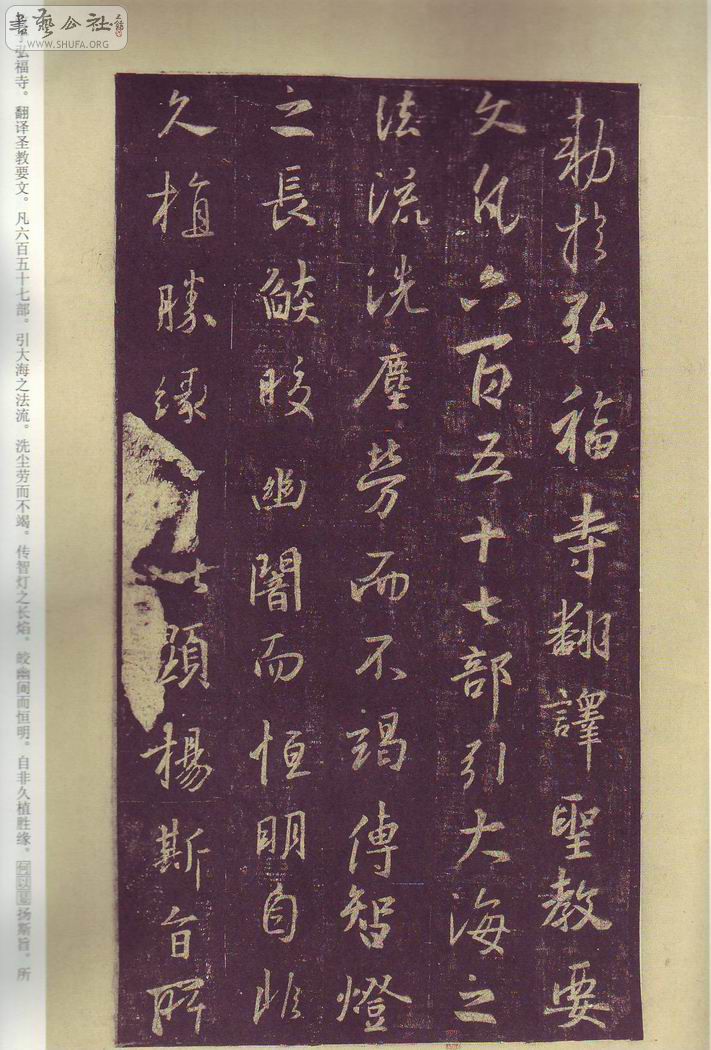 勅於弘福寺翻譯聖教要
文凡六百五十七部引大海之
法流洗塵勞而不竭傳智燈
之長燄皎幽闇而恒明自非
久植勝緣以顯楊斯旨所
書藝公社
WWW.SHUFA.ORG
弘福寺。翻译圣教要文。凡六百五十七部。引大海之法流。洗尘劳而不竭。传智灯之长焰。皎幽闇而恒明。自非久植胜缘。何以显扬斯旨。所